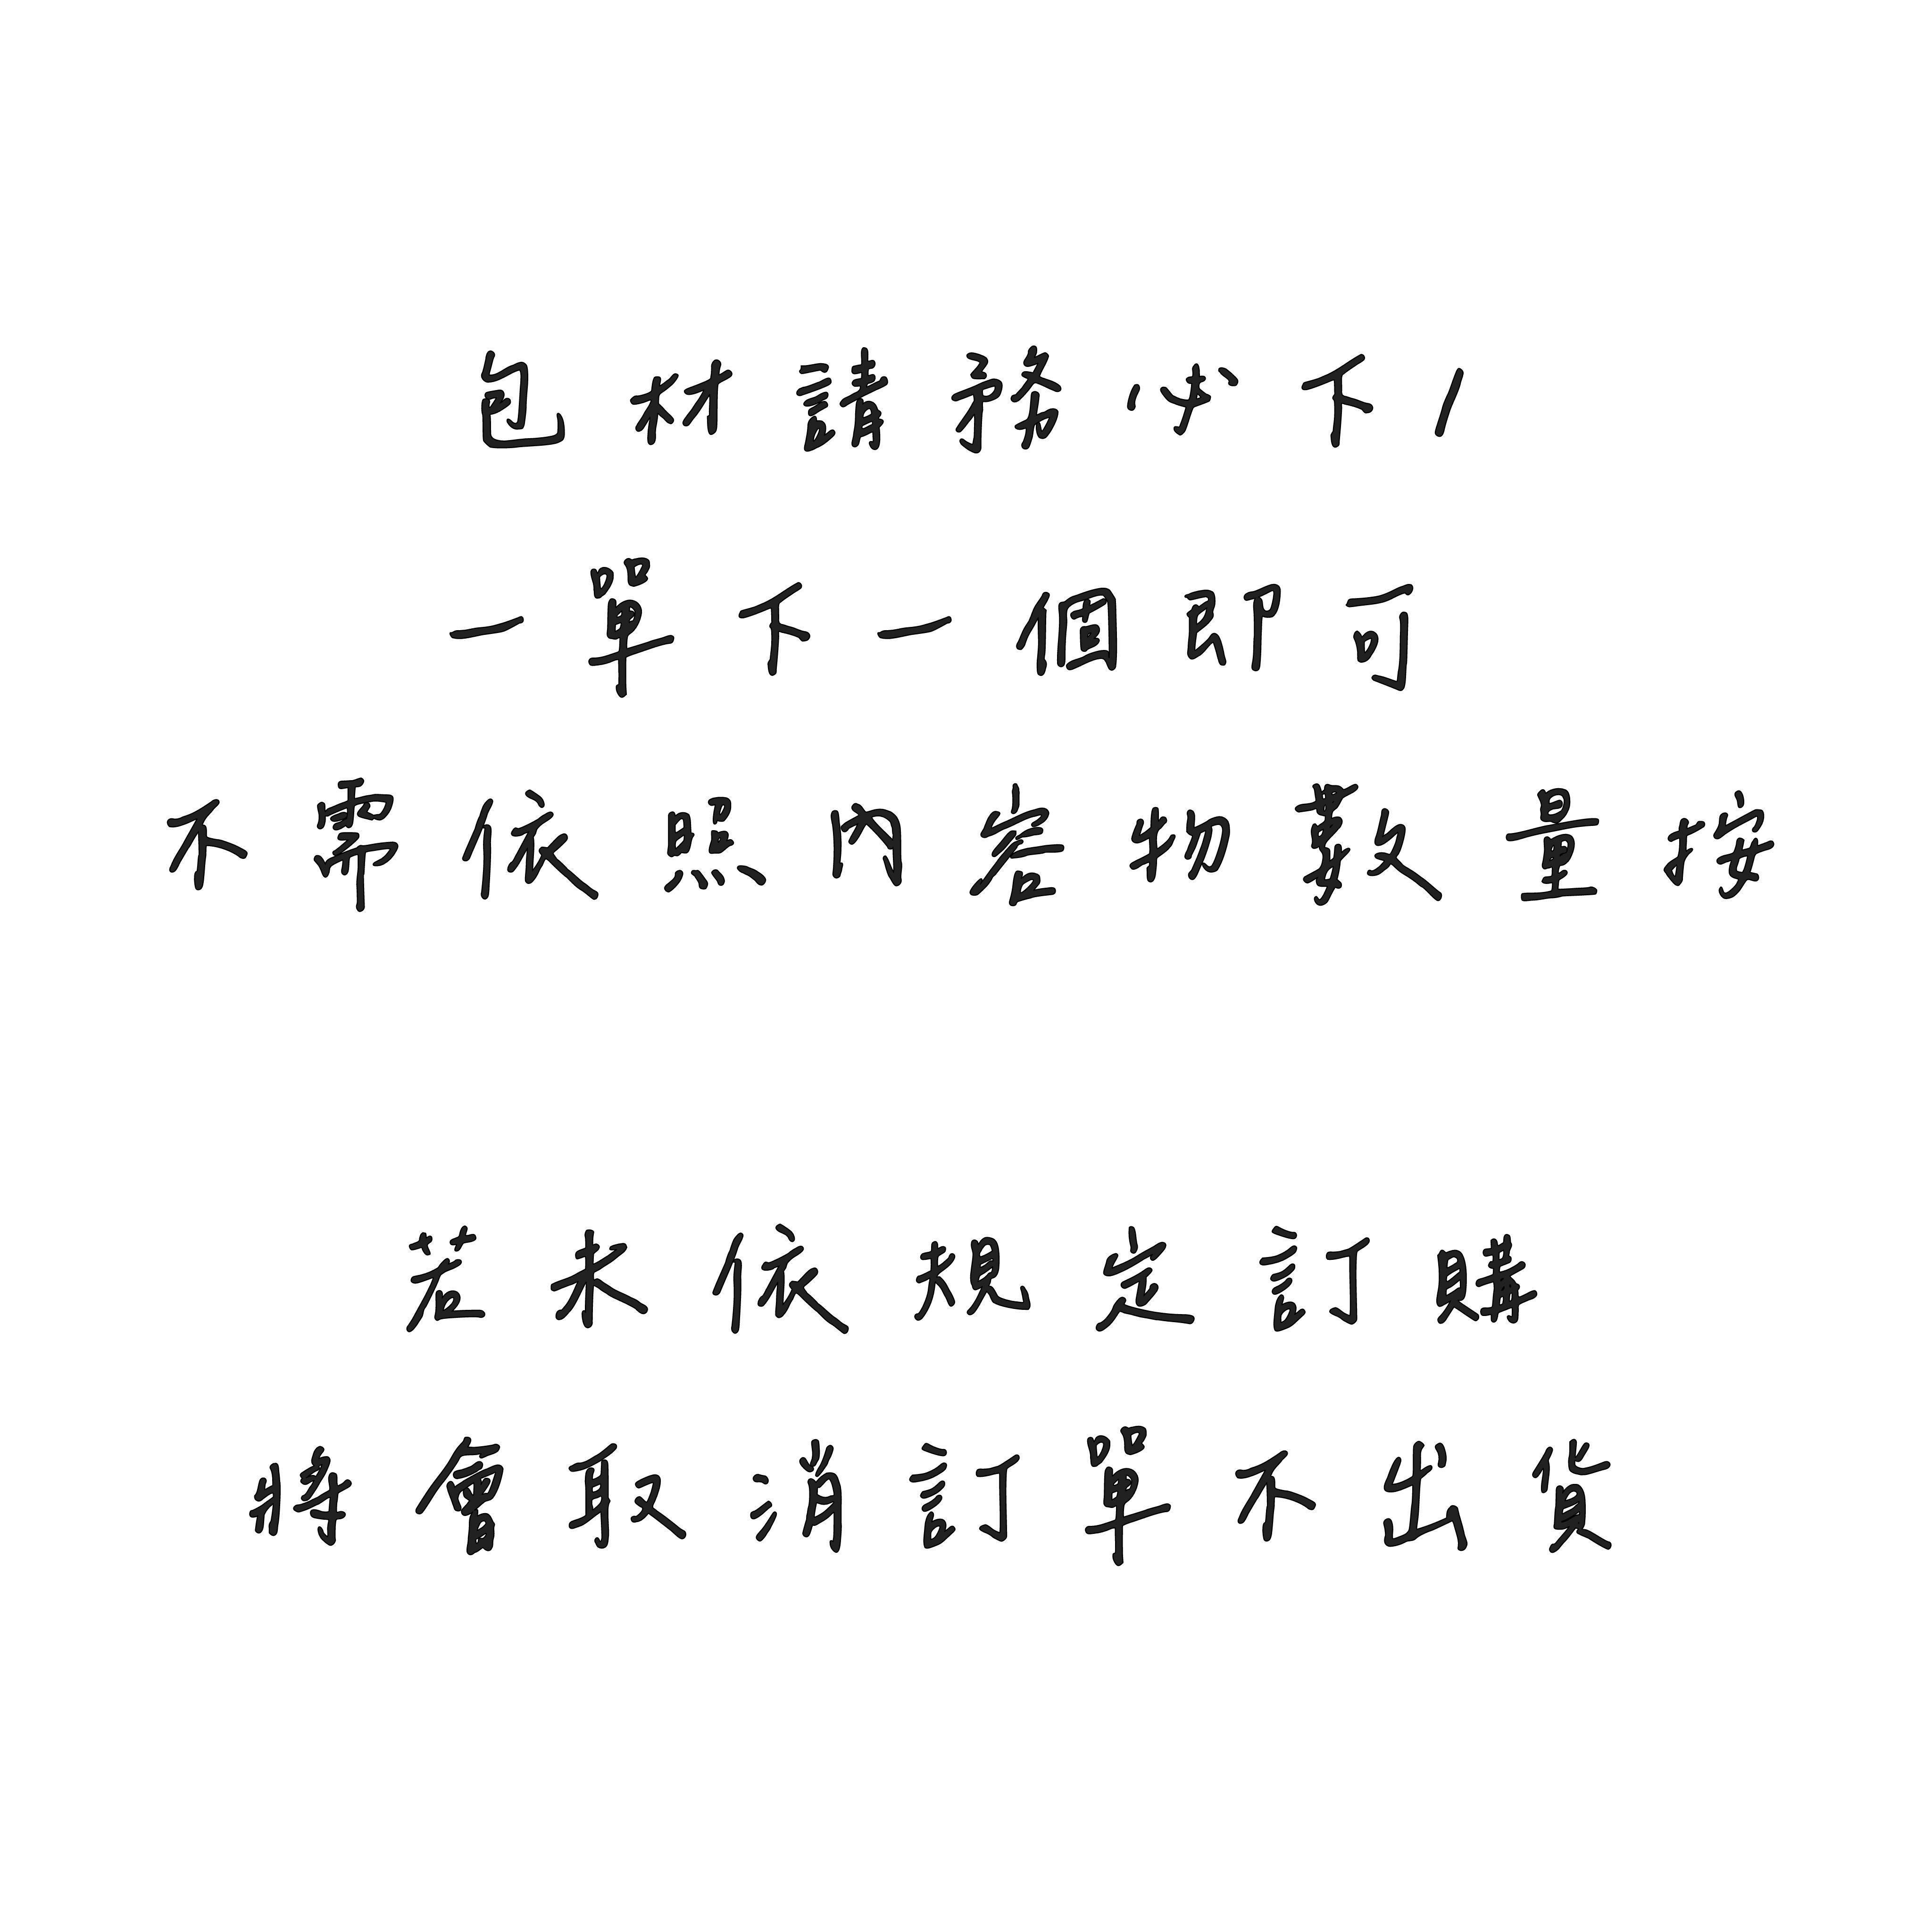 包材請務必下1
一單下一個即可
不需依照內容物數量按
若未依規定訂購
將會取消訂單不出貨